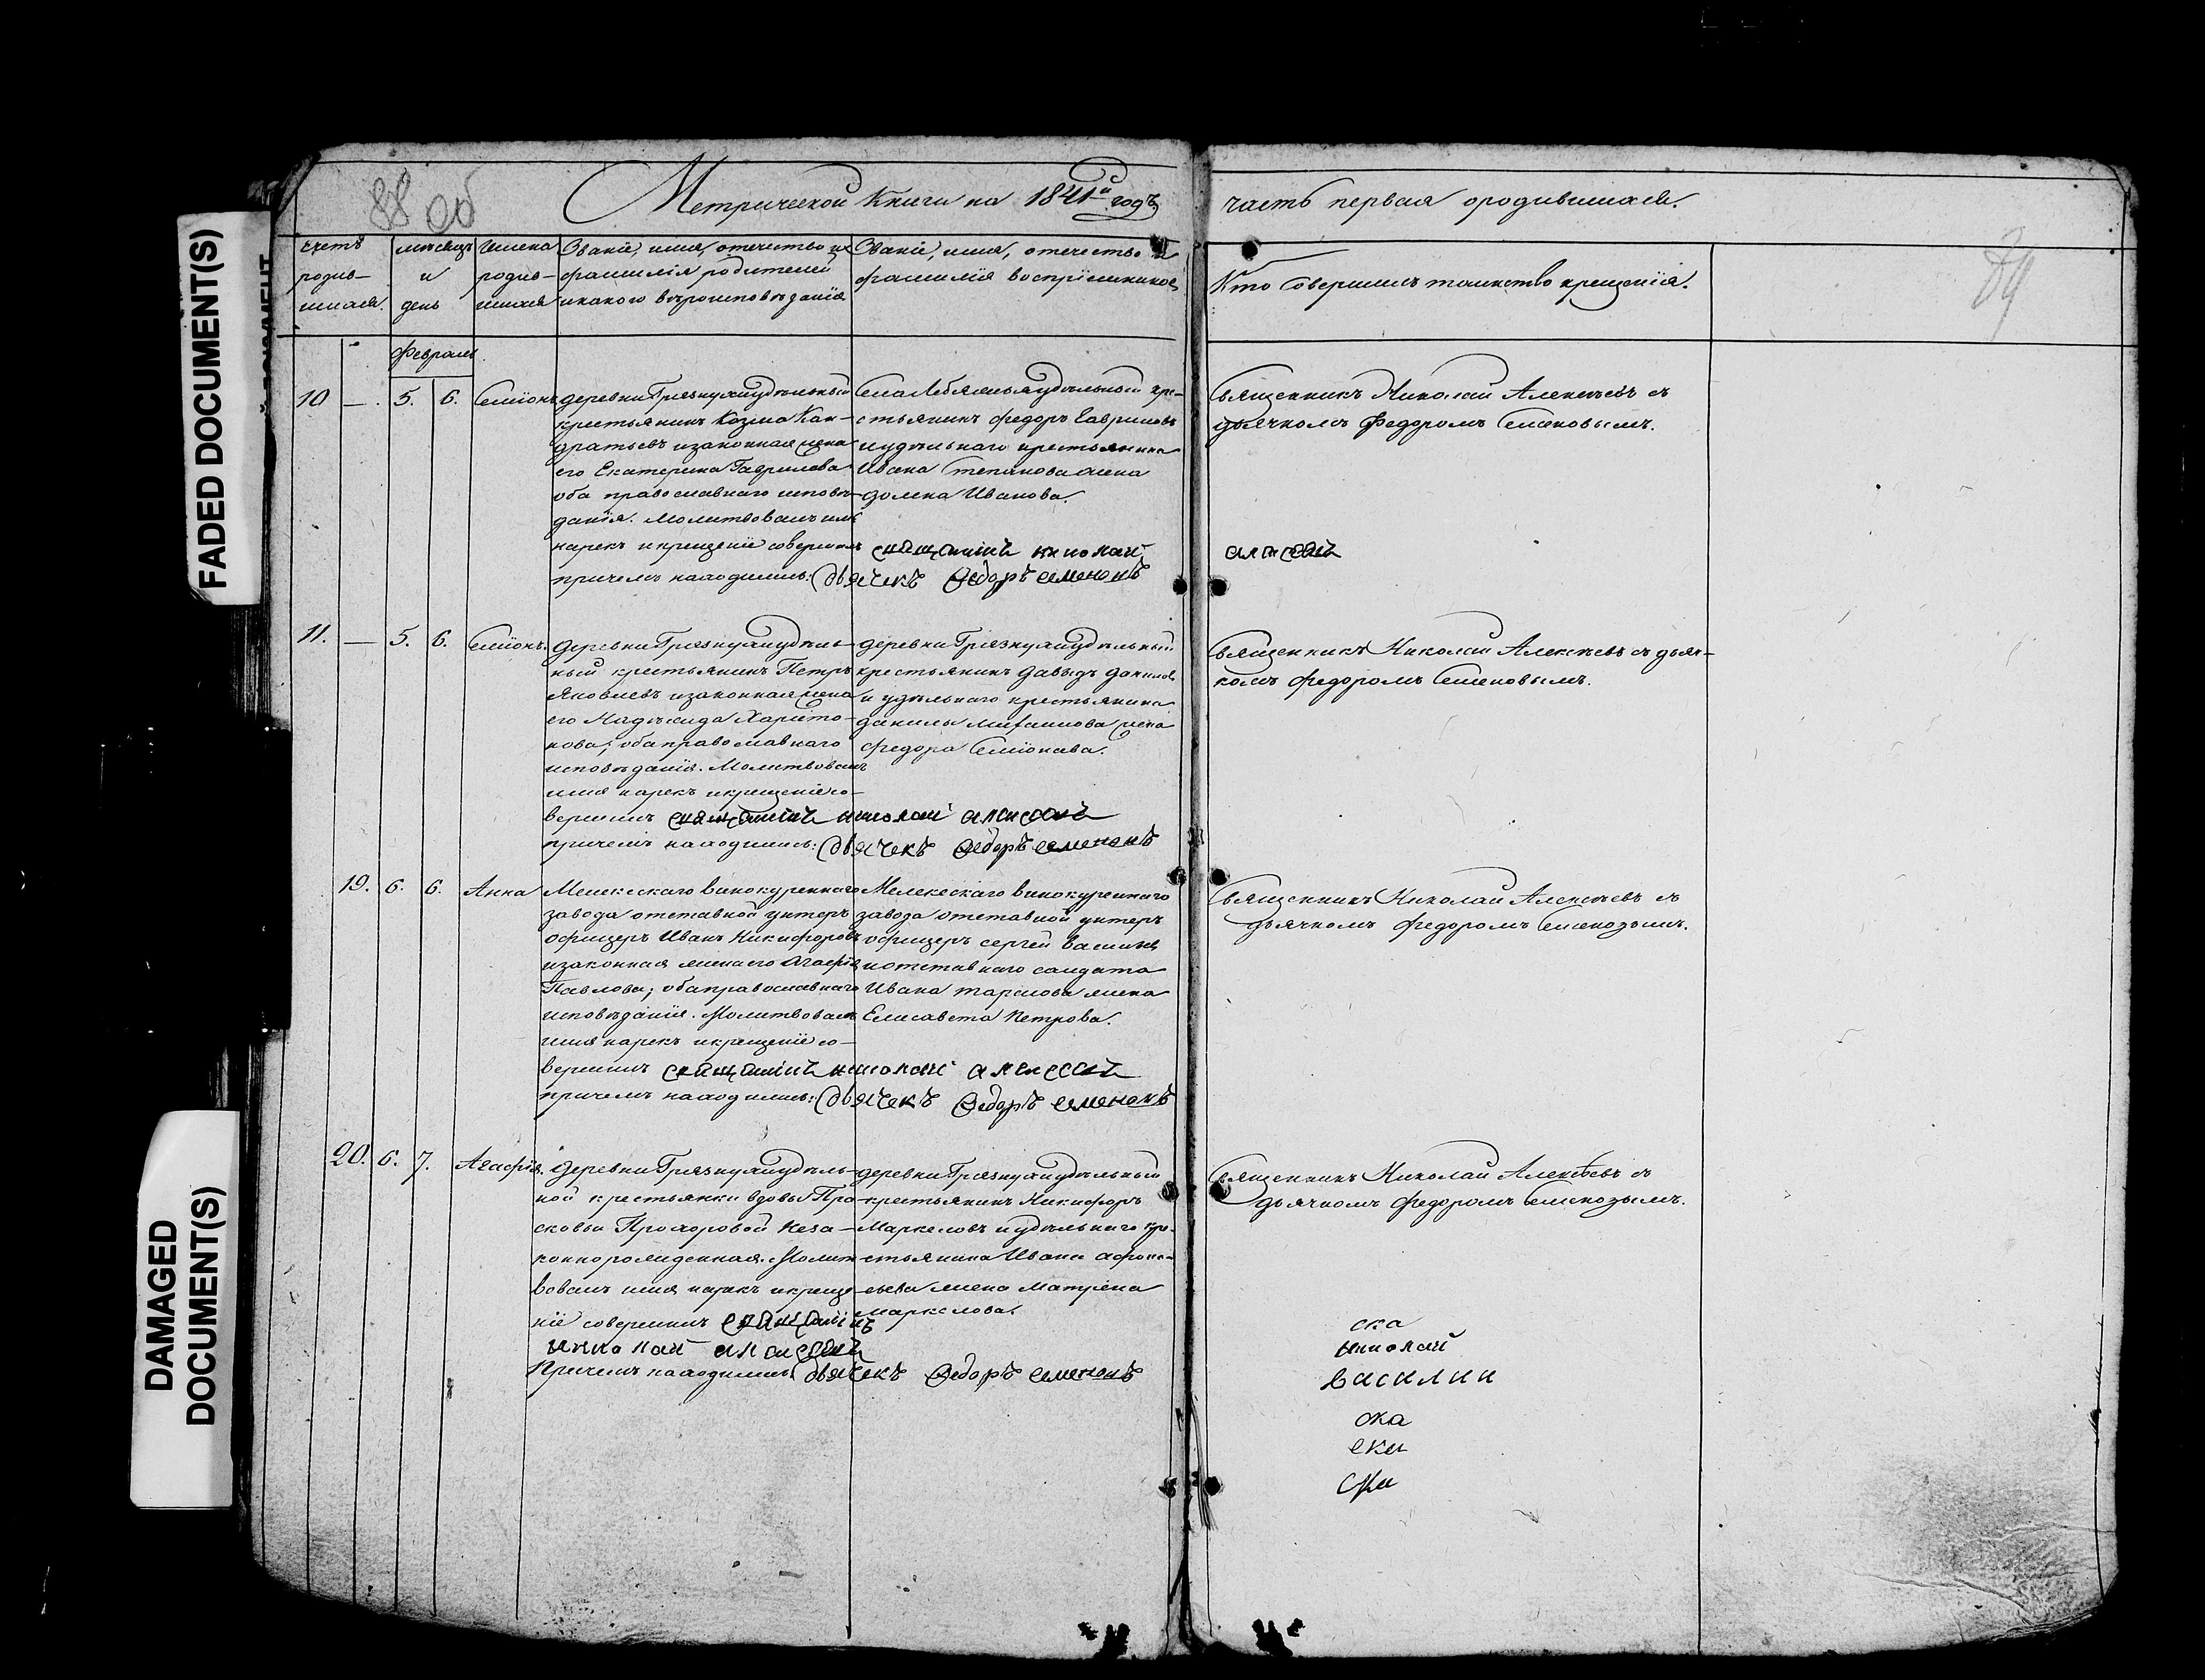 FADED DOCUMENT(S)
DAMAGED
DOCUMENT(S)
88 об
Метрической Книги на 1841й годъ
часть первая ородившихся.
Счетъ
родив-
шихся.
мѣсяцъ
и
день
Имена
родив-
шихся
Званіе, имя, отечество и
фамилія родителей
икакого вѣроисповѣданія
Званіе, имя, отечество и
фамилія воспріемниковъ
Кто Совершилъ таинство крещенія.
Февраль
10 — 5. 6. Симіонъ
деревни Грязнухиудѣльный
крестьянинъ Козма Кон-
дратьевъ изаконная жена
его Екатерина Гаврилова
оба православнаго исповѣ-
данія. Молитвовалъ имя
нарекъ икрещеніе совершилъ
причемъ находились:
Села Лебяжья удѣльный кре-
стьянинъ Федоръ Гавриловъ
иудѣльнаго крестьянина
Ивана Степанова жена
Иванова.
Дьячекъ Федоръ Семеновъ
Священникъ Николай Алексѣевъ съ
дьячкомъ Федоромъ Семеновымъ.
11. — 5. 6. Симіонъ.
деревни Грязнухиудѣль-
ный крестьянинъ Петръ
Яковлевъ изаконная жена
его Надѣжда Харито-
нова; оба православнаго
исповѣданія. Молитвовалъ
имя нарекъ икрещеніе со-
вершилъ
причемъ находились: Дьячекъ Федоръ Семеновъ
деревни Грязнухиудѣльный
крестьянинъ Давыдъ Даниловъ
и удѣльнаго крестьянина
Данилы жена
Федора Симіонова.
Священникъ Николай Алексѣевъ съ дьяч-
комъ Федоромъ Семеновымъ.
19. 6. 6. Анна
Мелекескаго винокуреннаго
завода отставной унтеръ
офицеръ Иванъ Никифоровъ
изаконная жена его Агафія
Павлова; оба православнаго
исповѣданія. Молитвовалъ
имя нарекъ икрещеніе со-
вершилъ
причемъ находились: Дьячекъ Федоръ Семеновъ
Мелекескаго винокуреннаго
завода отставной унтеръ
офицеръ Сергей Василіевъ
иотставнаго салдата
Ивана Тарасова жена
Елисавета Петрова.
Священникъ Николай Алексѣевъ съ
дьячкомъ Федоромъ Семеновымъ.
20. 6. 7. Агафія.
деревни Грязнухиудѣль-
ной крестьянки вдовы Пра-
сковьи Прохоровой неза-
коннорожденная. Молит-
вовалъ имя нарекъ икреще-
ніе совершилъ
николай
Причемъ находились: Дьячекъ Федоръ Семеновъ
деревни Грязнухиудѣльный
крестьянинъ Никифоръ
Маркеловъ иудѣльнаго кре-
стьянина Ивана Афона-
сьева жена Матрена
Маркелова.
Священникъ Николай Алексѣевъ съ
дьячкомъ Федоромъ Семеновымъ.
ска
николай
василии